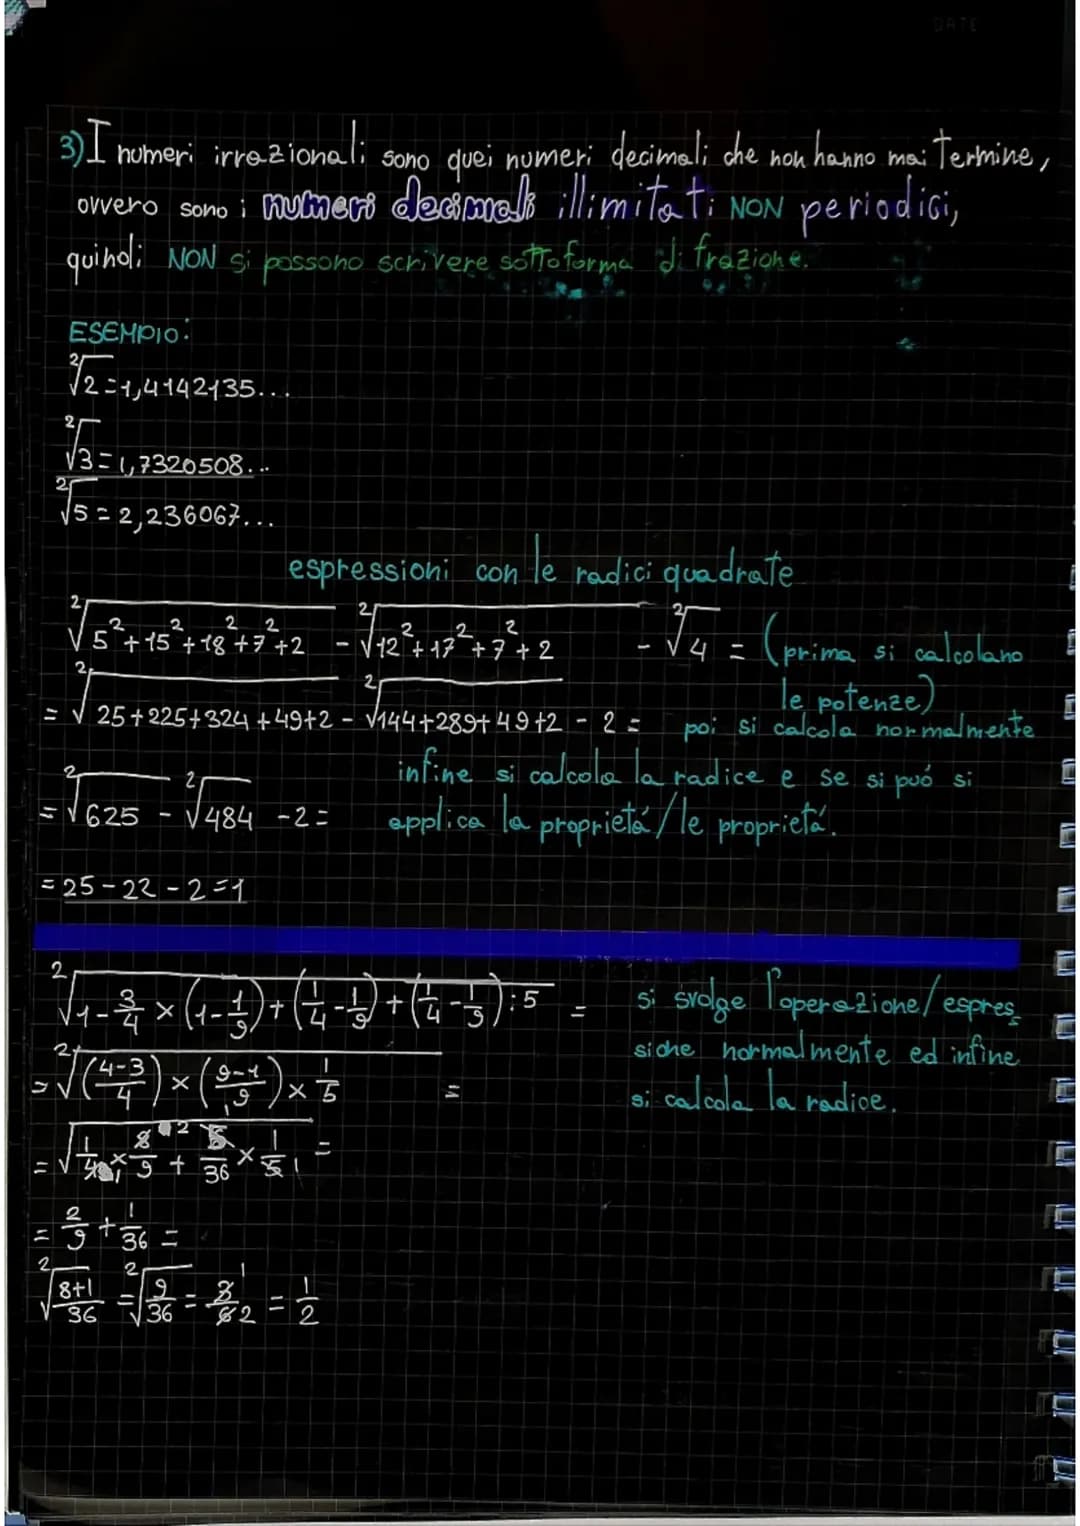 DATE
3) I numeri irrazionali sono quei numeri decimali che non hanno mai termine,
ovvero sono i numeri decimali illimitati NON periodici,
quindi NON si possono scrivere sottoforma di frazione.
ESEMPIO:
²√2=1,4142135...
²√3=1,7320508...
²√5=2,236067...
espressioni con le radici quadrate
²√(5²+15²+18²+7²+2) - ²√(12²+17²+7²+2) - ²√4 = (prima si calcolano
le potenze)
= ²√(25+225+324+49+2) - ²√(144+289+49+2) - 2 = poi si calcola normalmente
infine si calcola la radice e se si puó si
= ²√625 - ²√484 -2= applica la proprietá/le proprietá.
=25-22-2=1
²√(1-3/4×(1-1/9)+(1/4-1/9)+(1/4-1/9):5) = si svolge l'operazione/espres
=²√((4-3/4)×(9-1/9)×1/5) = sione normalmente ed infine
si calcola la radice.
=√(1/4×8/9+5/36×1/5) =
=2/9+1/36=
²√(8+1/36) =²√(9/36)=3/6=1/2